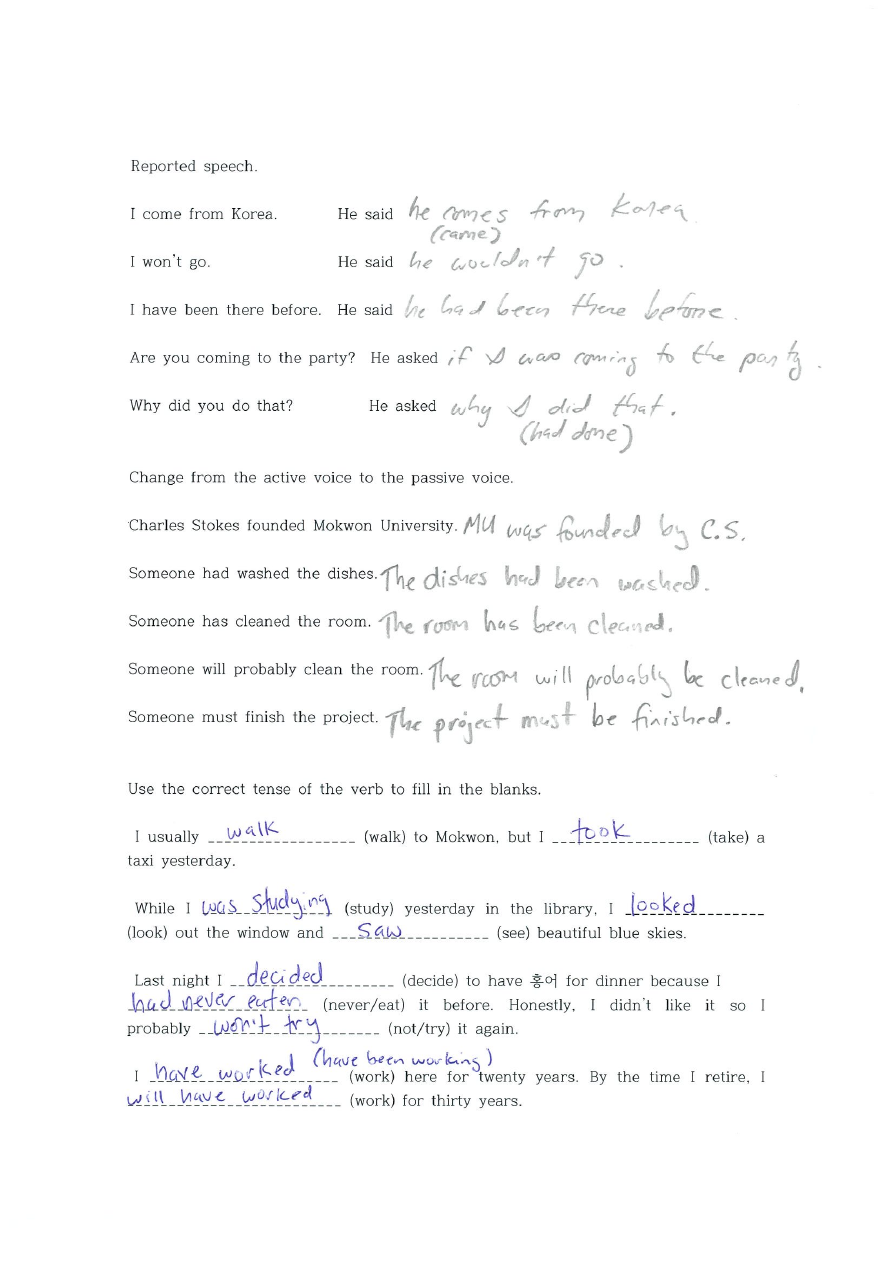 Reported speech.
I come from Korea. He said he comes from Korea
(came)
I won't go. He said he wouldn't go .
I have been there before. He said he had been there before .
Are you coming to the party? He asked if I was coming to the party .
Why did you do that? He asked why I did that .
(had done)
Change from the active voice to the passive voice.
Charles Stokes founded Mokwon University. MU was founded by C.S.
Someone had washed the dishes. The dishes had been washed.
Someone has cleaned the room. The room has been cleaned.
Someone will probably clean the room. The room will probably be cleaned.
Someone must finish the project. The project must be finished.
Use the correct tense of the verb to fill in the blanks.
I usually walk (walk) to Mokwon, but I took (take) a
taxi yesterday.
While I was studying (study) yesterday in the library, I looked
(look) out the window and saw (see) beautiful blue skies.
Last night I decided (decide) to have 홍어 for dinner because I
had never eaten (never/eat) it before. Honestly, I didn't like it so I
probably won't try (not/try) it again.
(have been working)
I have worked (work) here for twenty years. By the time I retire, I
will have worked (work) for thirty years.